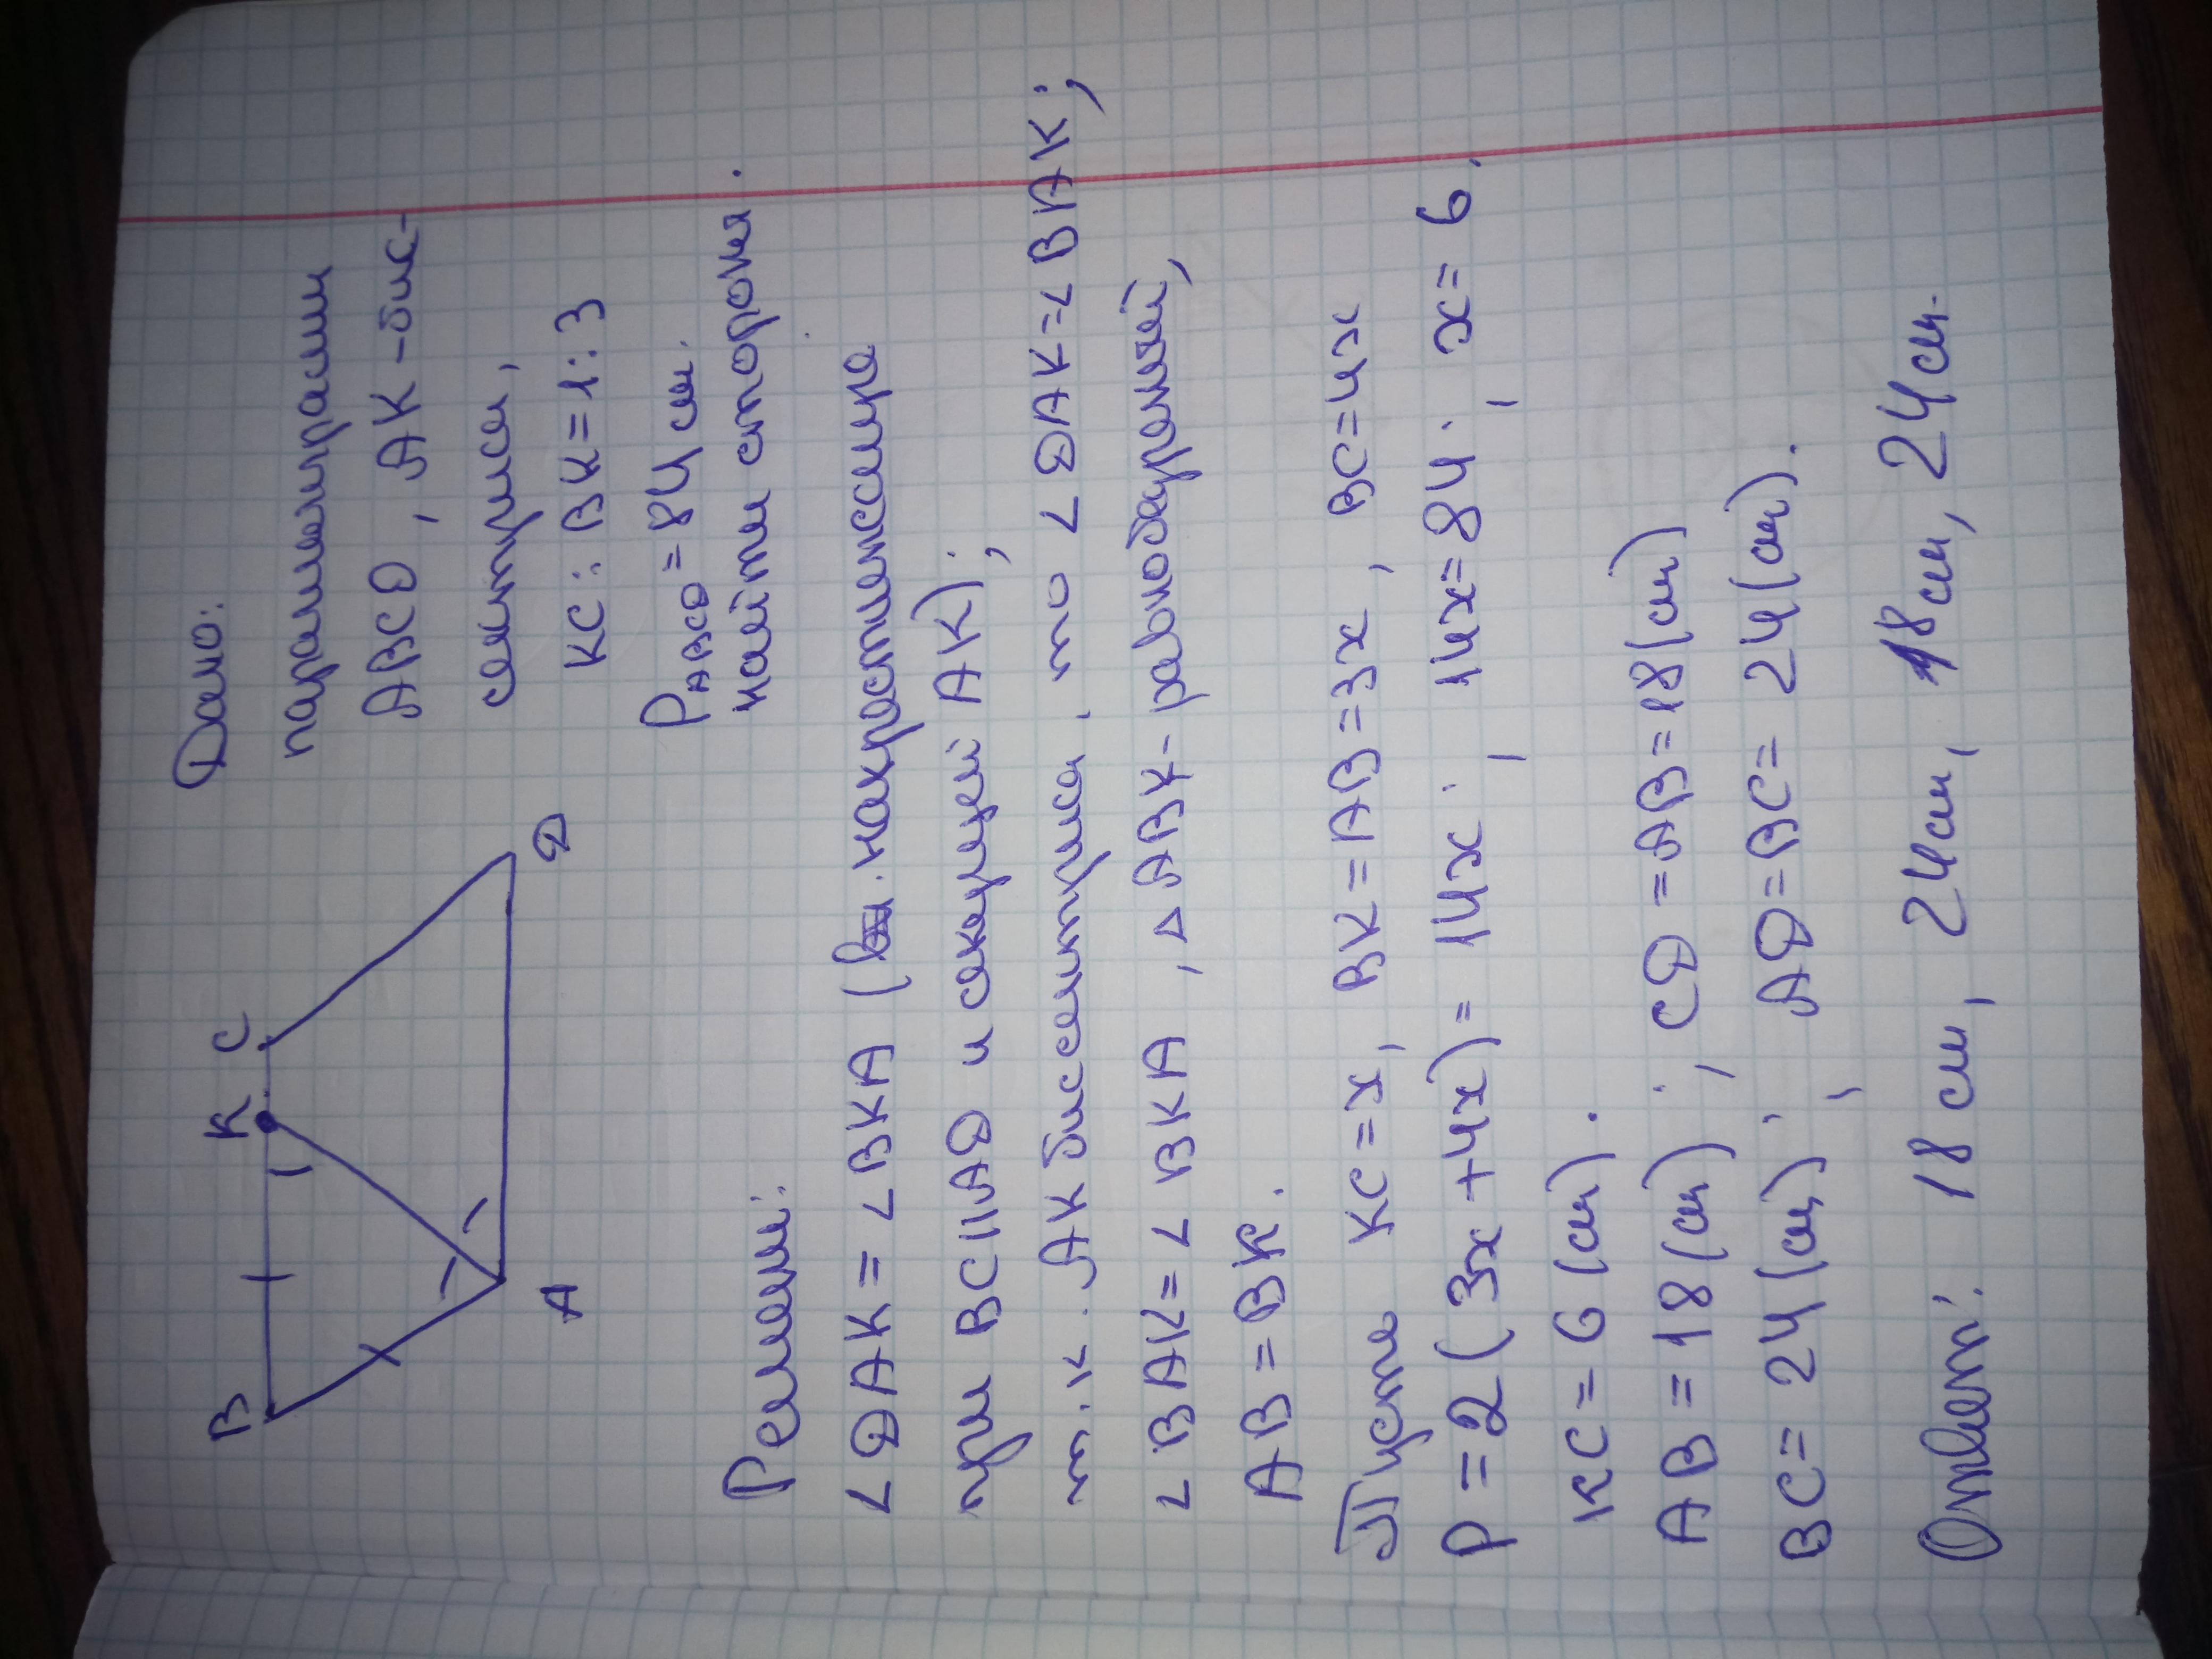 B
K
C
A
D
Дано:
параллелграмм
ABCD, AK - бис-
сектриса,
KC : BK = 1 : 3
P ABCD = 84 см.
найти стороны.
Решение:
∠DAK = ∠BKA ( накрестлежащие
при BC || AD и секущей AK);
т.к. AK биссектриса, то ∠DAK = ∠BAK;
∠BAK = ∠BKA, △ABK - равнобедренный,
AB = BK.
Пусть KC = x, BK = AB = 3x, BC = 4x
P = 2(3x + 4x) = 14x; 14x = 84; x = 6,
KC = 6 (см).
AB = 18 (см); CD = AB = 18 (см)
BC = 24 (см); AD = BC = 24 (см).
Ответ: 18 см, 24 см, 18 см, 24 см.